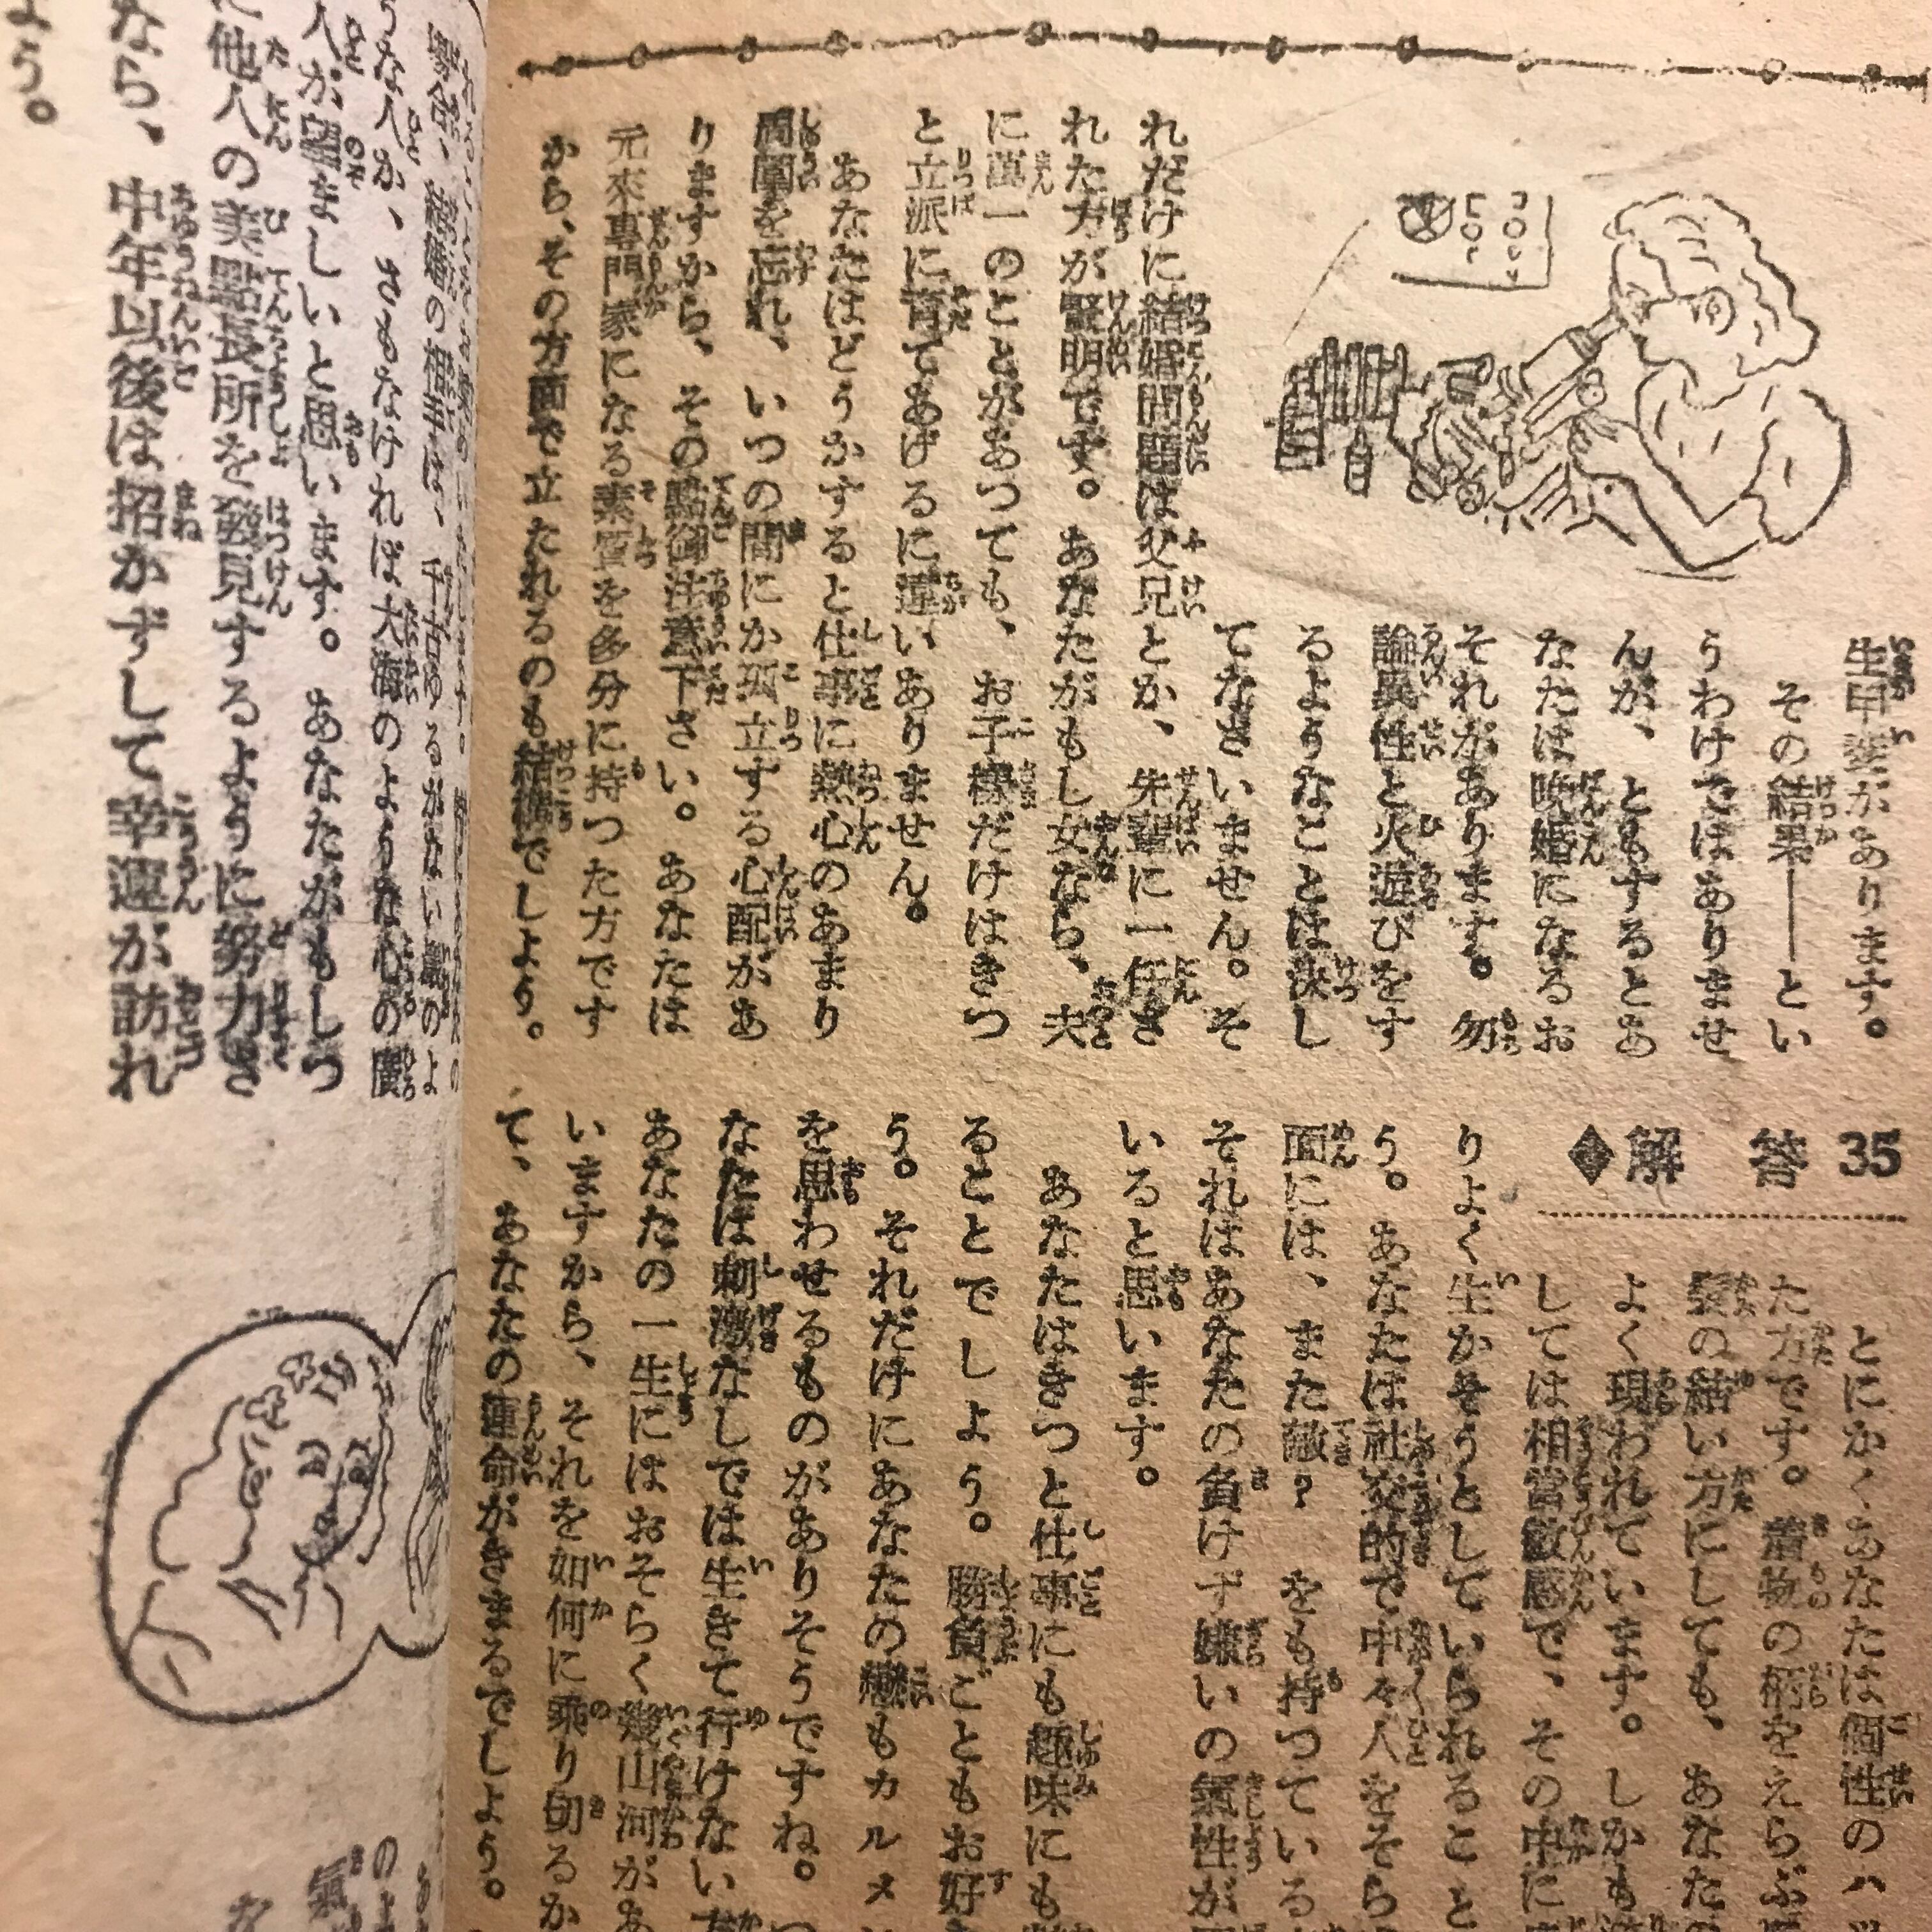 生甲斐があります。
その結果――とい
うわけではありませ
んが、ともするとあ
なたは晩婚になるお
それがあります。勿
論異性と火遊びをす
るようなことは決し
てなさいません。そ
れだけに結婚問題は父兄とか、先輩に一任さ
れた方が賢明です。あなたがもし女なら、夫
に萬一のことがあつても、お子様だけはきつ
と立派に育てあげるに違いありません。
あなたはどうかすると仕事に熱心のあまり
周圍を忘れ、いつの間にか孤立する心配があ
りますから、その點御注意下さい。あなたは
元來專門家になる素質を多分に持つた方です
から、その方面で立たれるのも結構でしよう。
35 解答
とにかくあなたは個性のハ
た方です。着物の柄をえらぶ
髮の結い方にしても、あなたの
よく現われています。しかも
しては相當敏感で、その中に
りよく生かそうとしていられること
う。あなたは社交的で中々人をそら
面には、また敵?をも持つている
それはあなたの負けず嫌いの氣性が
いると思います。
あなたはきつと仕事にも趣味にも
ることでしよう。勝負ごともお好き
う。それだけにあなたの戀もカルメ
を思わせるものがありそうですね。
なたは刺激なしでは生きて行けない方
あなたの一生にはおそらく幾山河があ
いますから、それを如何に乘り切るか
て、あなたの運命がきまるでしよう。
千古
るがない巖のよ
うな人か、さもなければ大海のような心の廣
人が望ましいと思います。あなたがもしつ
に他人の美點長所を發見するように努力さ
なら、中年以後は招かずして幸運が訪れ
よう。
のよ
氣
を